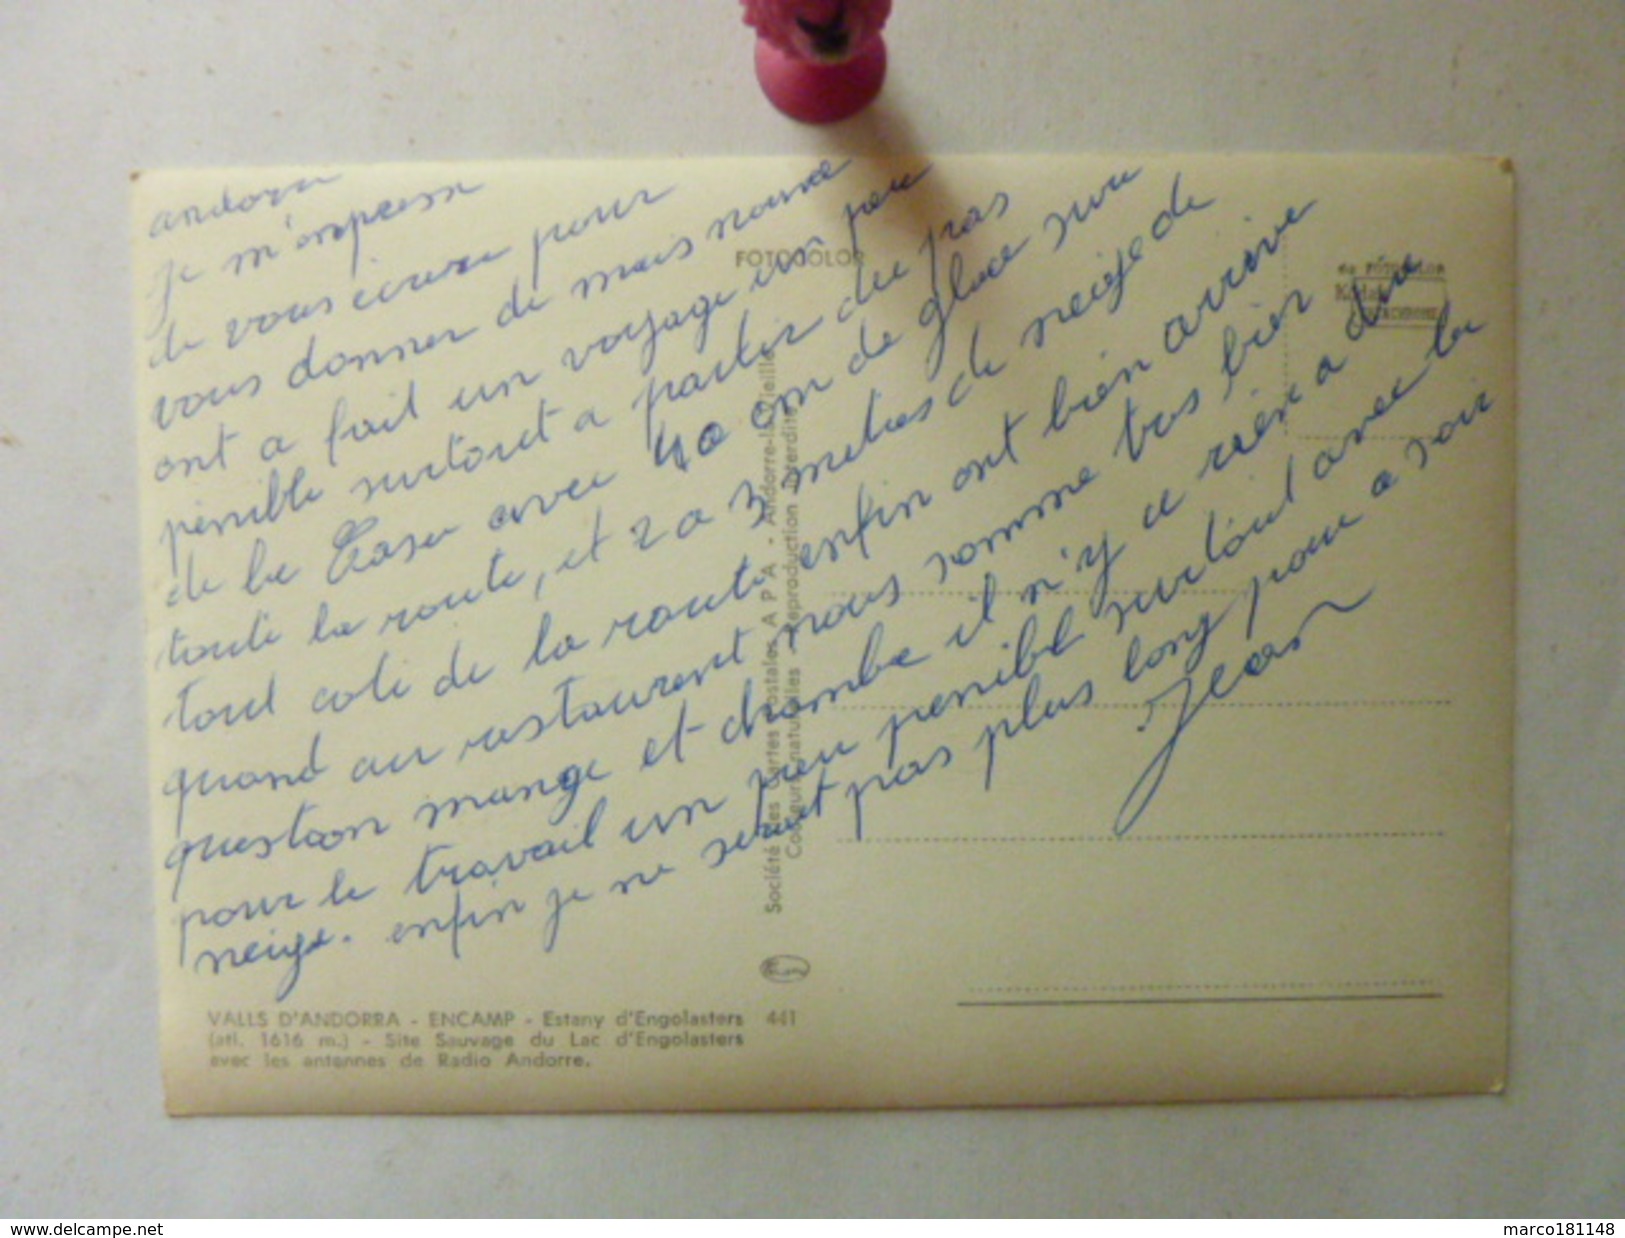 andorra
je m'empresse
de vous ecrire pour
vous donner de mais nouve
ont a fait un voyage un peu
penible surtout a partir du pas
de la Casa avec 40 cm de glace sur
toute la route, et 2 a 3 metres de neige de
tout coté de la route enfin ont bien arrive
quand au restaurent nous somme tres bien
question mange et chambre il n'y a rien a dire
pour le travail un peu penible surtout avec la
neige. enfin je ne serait pas plus long pour a soir
Jean
FOTOCOLOR
de FOTOCOLOR
Kodak
EKTACHROME
Société des Cartes Postales A P A - Andorre-la-Vieille
Couleurs naturelles - Reproduction interdite
VALLS D'ANDORRA - ENCAMP - Estany d'Engolasters 441
(atl. 1616 m.) - Site Sauvage du Lac d'Engolasters
avec les antennes de Radio Andorre.
www.delcampe.net
marco181148